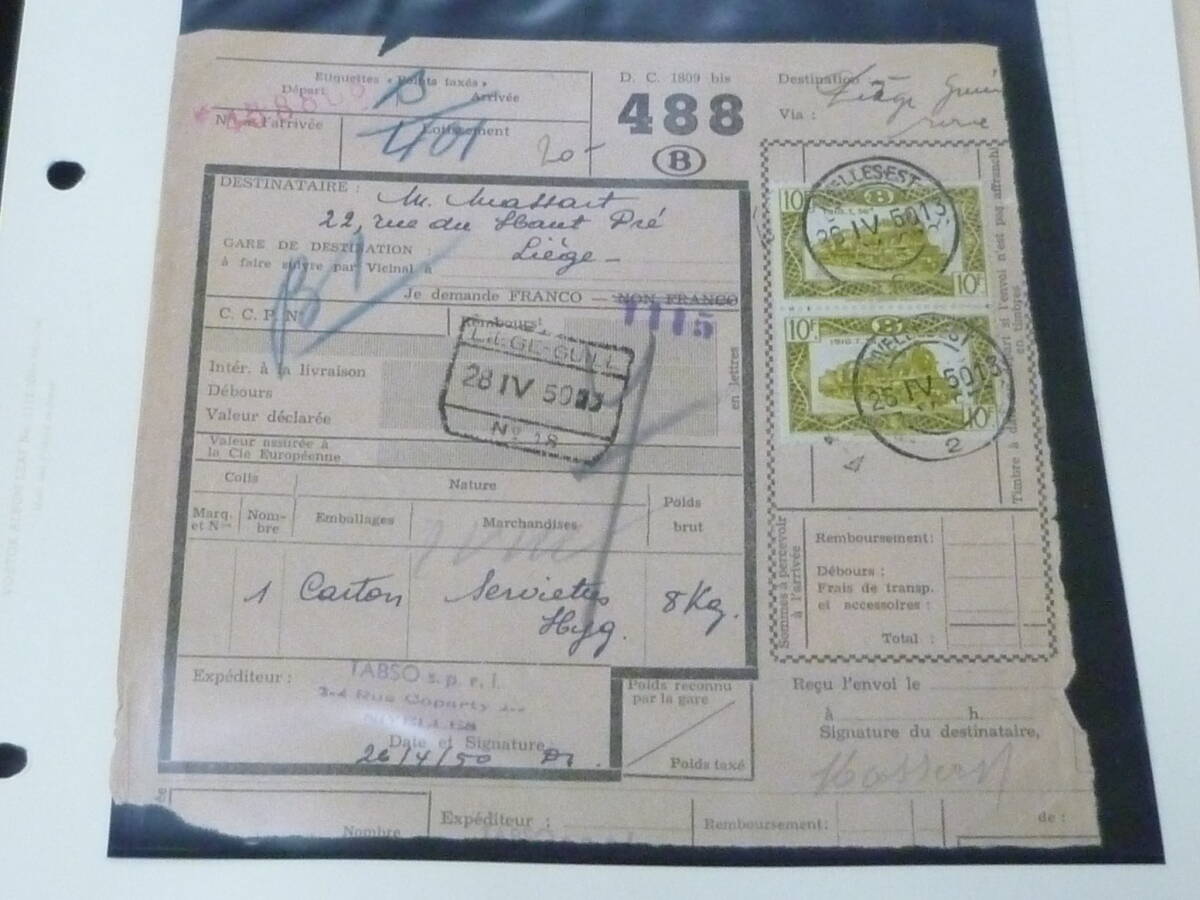 Etiquettes « Points taxés »
Départ
Arrivée
B
N° de l'arrivée
Lotissement
401
20-
D. C. 1809 bis
488
B
Destination
Liège
Via :
DESTINATAIRE :
M. Massart
22, rue du Haut Pré
GARE DE DESTINATION :
Liège -
à faire suivre par Vicinal à
Je demande FRANCO — NON FRANCO
B1
C. C. P. N°
Rembours^t
1115
LIEGE-GUILL
28 IV 50
N° 18
Intér. à la livraison
Débours
Valeur déclarée
Valeur assurée à
la Cie Européenne
en lettres
Colis
Nature
Poids
brut
Marq.
et N^os
Nom-
bre
Emballages
Marchandises
1 Carton Serviettes 8 Kg.
Hyg.
Expéditeur :
TABSO s. p. r. l.
NIVELLES
Date et Signature
26/4/50
Poids reconnu
par la gare
Poids taxé
10F
B
10F
NIVELLES EST
26 IV 50 13
10F
B
10F
NIVELLES EST
26 IV 50 13
2
Timbre à date
du départ si l'envoi n'est pas affranchi
en timbres
Sommes à percevoir
à l'arrivée
Remboursement:
Débours :
Frais de transp.
et accessoires :
Total :
Reçu l'envoi le
à h.
Signature du destinataire,
Nombre
Expéditeur :
Remboursement:
de :